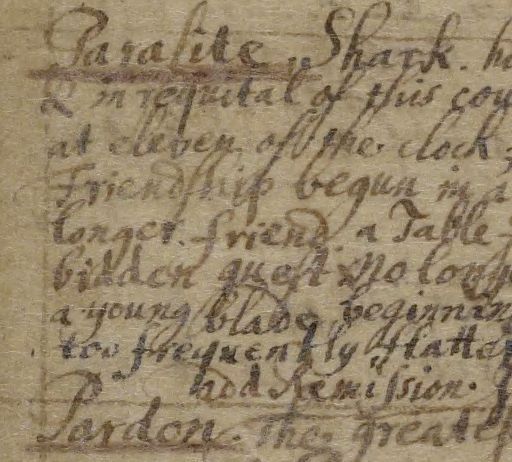 Parasite. Shark. ho
& in requital of this cou
at eleven of the clock
Friendship begun in a
longer. friend. a Table
bidden guest No longe
a young blade, beginnin
too frequently flatte
add Remission.
Pardon. The greate